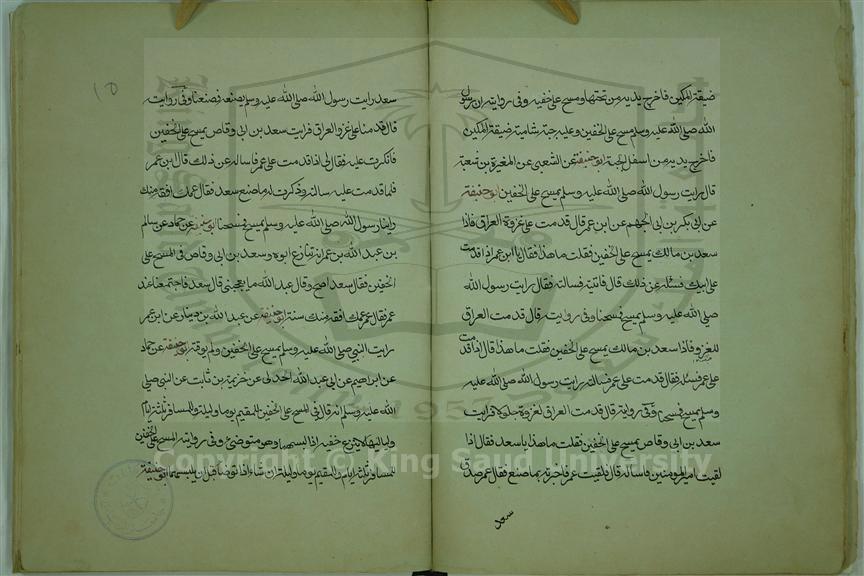 ضيقة الكمين فاخرج يديه من تحتها ومسح على خفيه وفى رواية ان رسول
الله صلى الله عليه وسلم مسح على الخفين وعليه جبة شامية ضيقة الكمين
فاخرج يديه من اسفل الجبة ابو حنيفة عن الشعبى عن المغيرة بن شعبة
قال رايت رسول الله صلى الله عليه وسلم يمسح على الخفين ابو حنيفة
عن ابى بكر بن ابى الجهم عن ابن عمر قال قدمت على غزوة العراق فاذا
سعد بن مالك يمسح على الخفين فقلت ما هذا فقال يا ابن عمر اذا قدمت
على ابيك فسئله عن ذلك قال فاتيته فسالته فقال رايت رسول الله
صلى الله عليه وسلم يمسح فمسحنا وفى رواية قال قدمت العراق
للغزو فاذا سعد بن مالك يمسح على الخفين فقلت ما هذا قال اذا قدمت
على عمر فسئله فقال قدمت على عمر فسالته رايت رسول الله صلى الله عليه
وسلم يمسح فمسح وفى رواية قال قدمت العراق لغزوة جلولا فرايت
سعد بن ابى وقاص يمسح على الخفين فقلت ما هذا يا سعد فقال اذا
لقيت امير المومنين فاساله قال فلقيت عمر فاخبرته بما صنع فقال عمر صدق
سعد
١٥
سعد رايت رسول الله صلى الله عليه وسلم يصنعه فصنعنا وفى رواية
قال قدمنا على غزو العراق فرايت سعد بن ابى وقاص يمسح على الخفين
فانكرت عليه فقال لى اذا قدمت على عمر فاساله عن ذلك قال ابن عمر
فلما قدمت عليه سالته وذكرت له ما صنع سعد فقال عمك افقه منك
راينا رسول الله صلى الله عليه وسلم يمسح فمسحنا ابو حنيفة عن حماد عن سالم
بن عبد الله بن عمر انه تنازع ابوه وسعد بن ابى وقاص فى المسح على
الخفين فقال سعد امسح وقال عبد الله ما يعجبنى قال سعد فاجتمعنا عند
عمر فقال عمر عمك افقه منك سنة ابو حنيفة عن عبد الله بن دينار عن ابن عمر
رايت النبى صلى الله عليه وسلم يمسح على الخفين ولم يوقته ابو حنيفة عن حماد
عن ابراهيم عن ابى عبد الله الجدلى عن خزيمة بن ثابت عن النبى صلى
الله عليه وسلم انه قال فى المسح على الخفين للمقيم يوما وليلة وللمسافر ثلثة ايام
ولياليها لا ينزع خفيه اذا لبسهما وهو متوضئ وفى رواية المسح على الخفين
للمسافر ثلثة ايام وللمقيم يوما وليلة ان شاء اذا توضا قبل ان يلبسهما ابو حنيفة
Copyright © King Saud University
1957